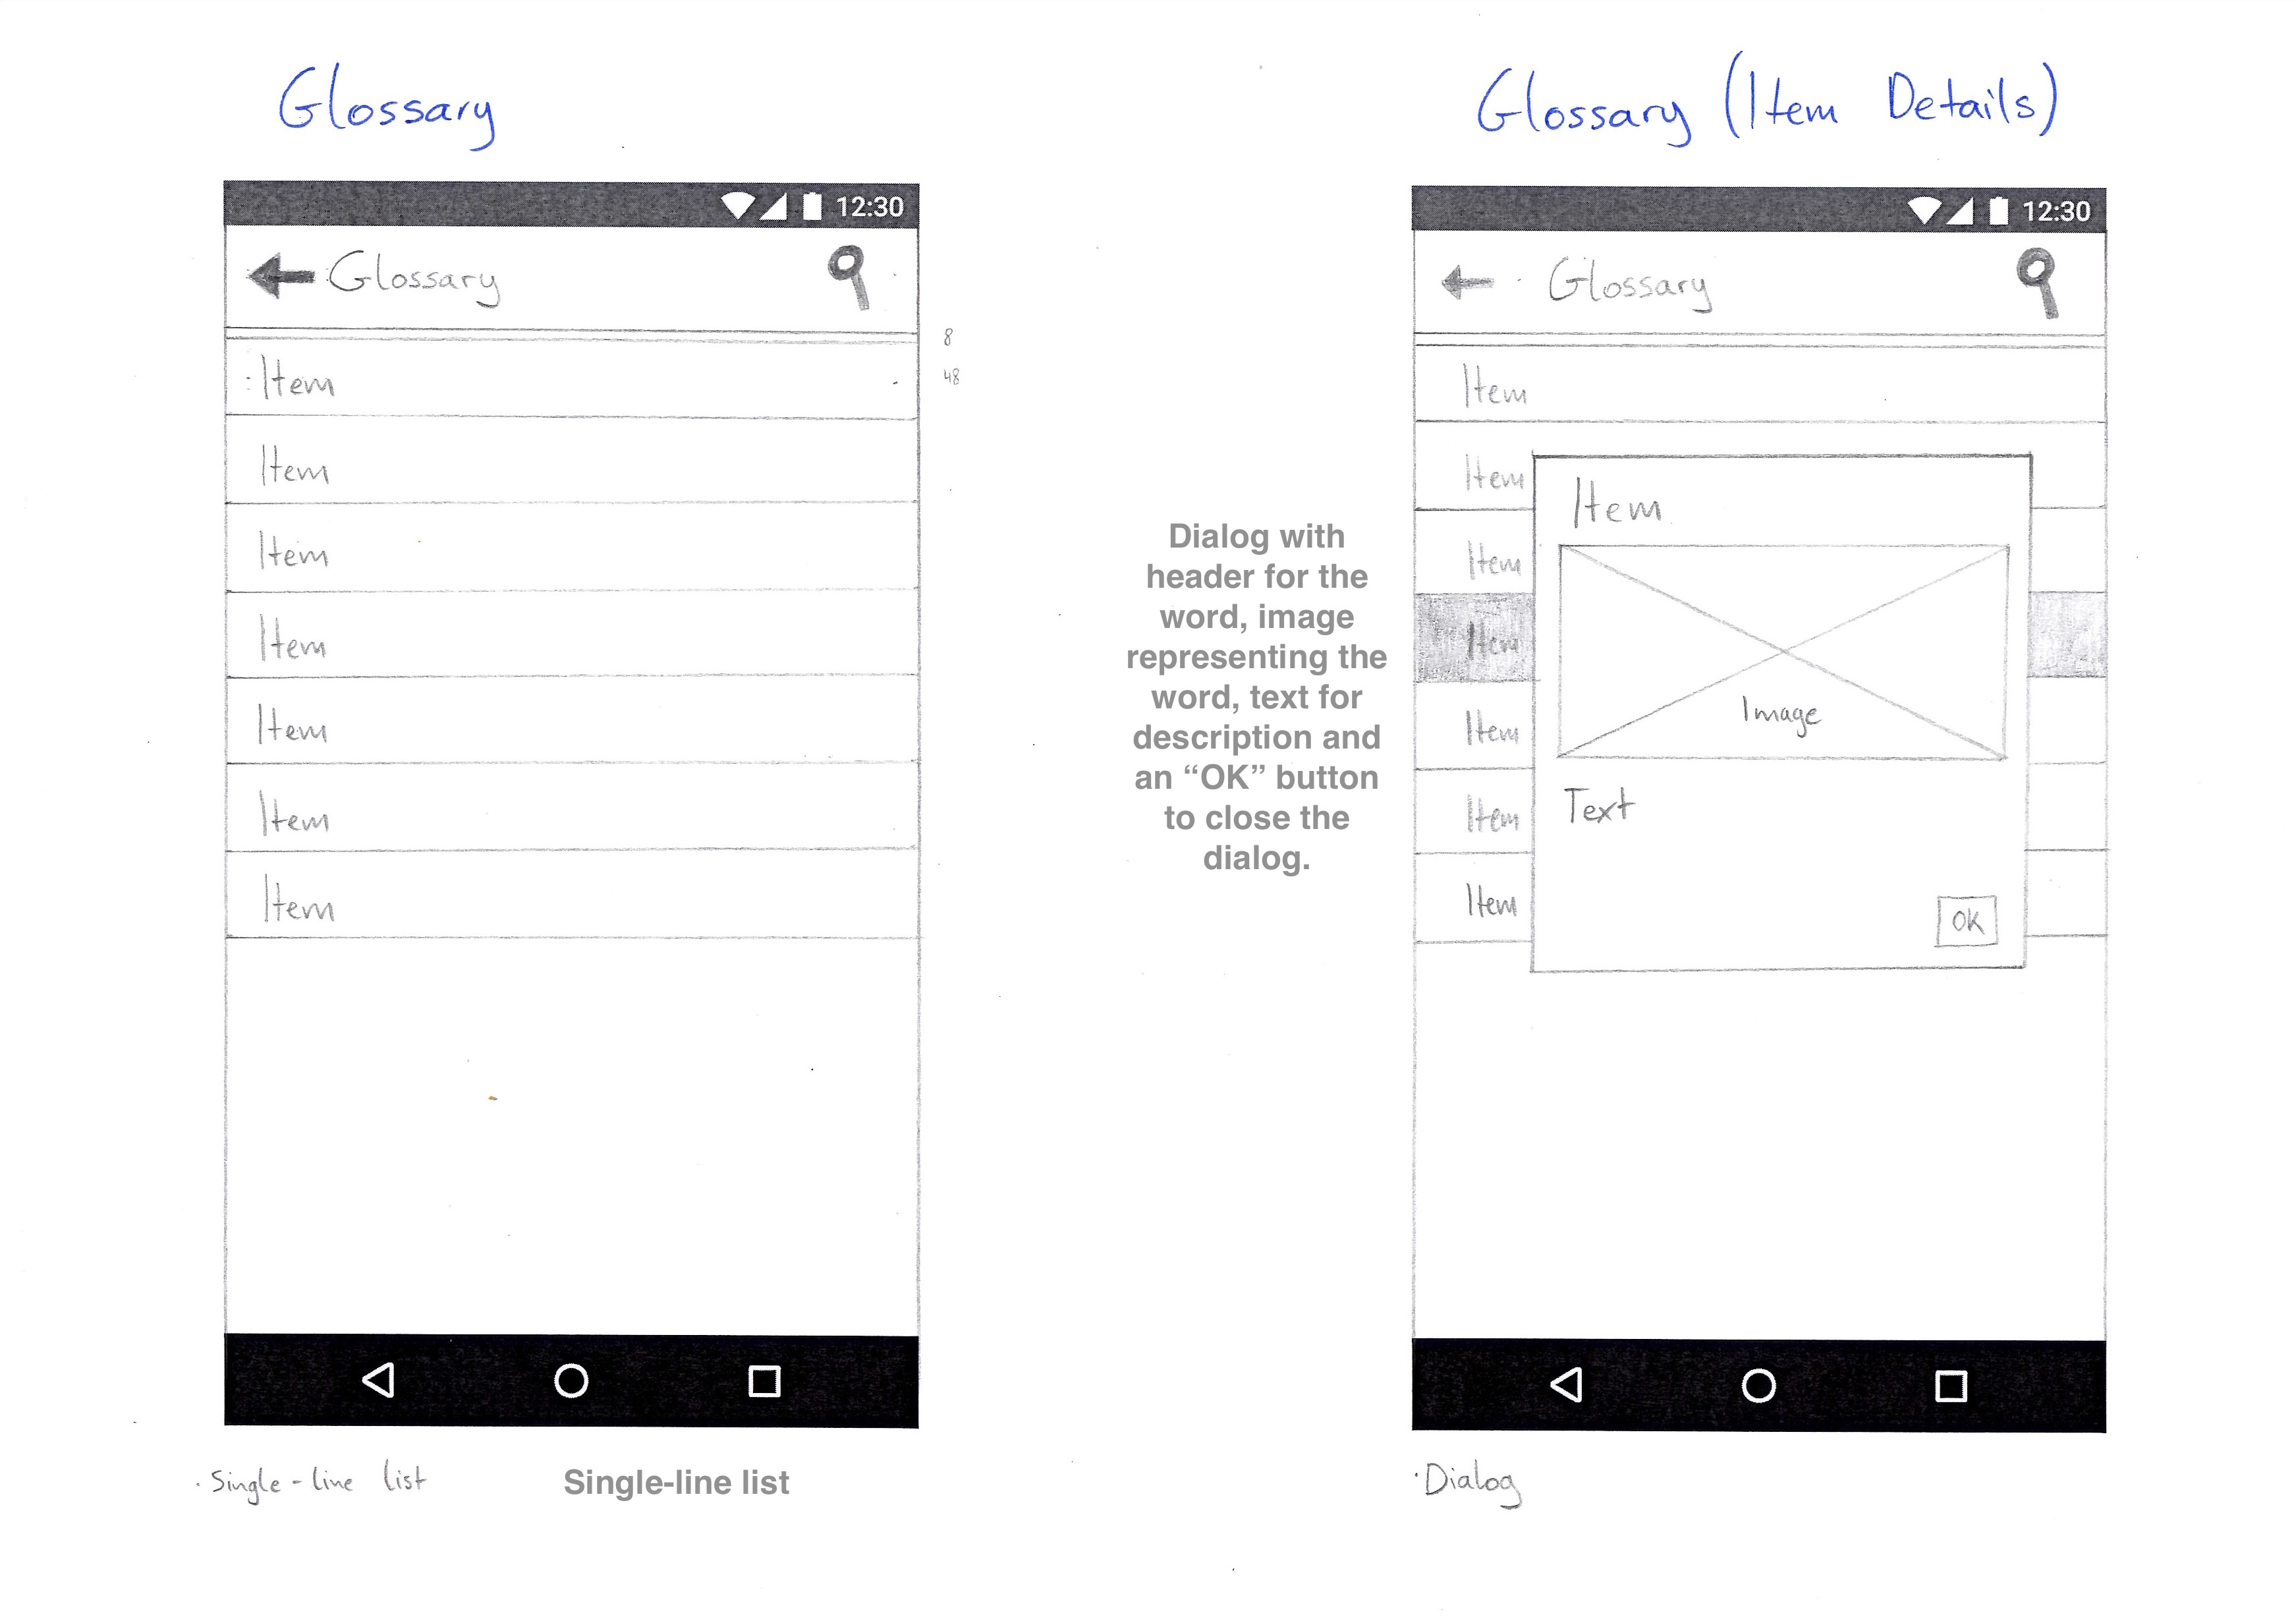 Glossary
12:30
Glossary
8
Item
48
Item
Item
Item
Item
Item
Item
Single-line list
Single-line list
Dialog with
header for the
word, image
representing the
word, text for
description and
an “OK” button
to close the
dialog.
Glossary (Item Details)
12:30
Glossary
Item
Item
Item
Item
Item
Item
Item
Item
Image
Text
OK
Dialog